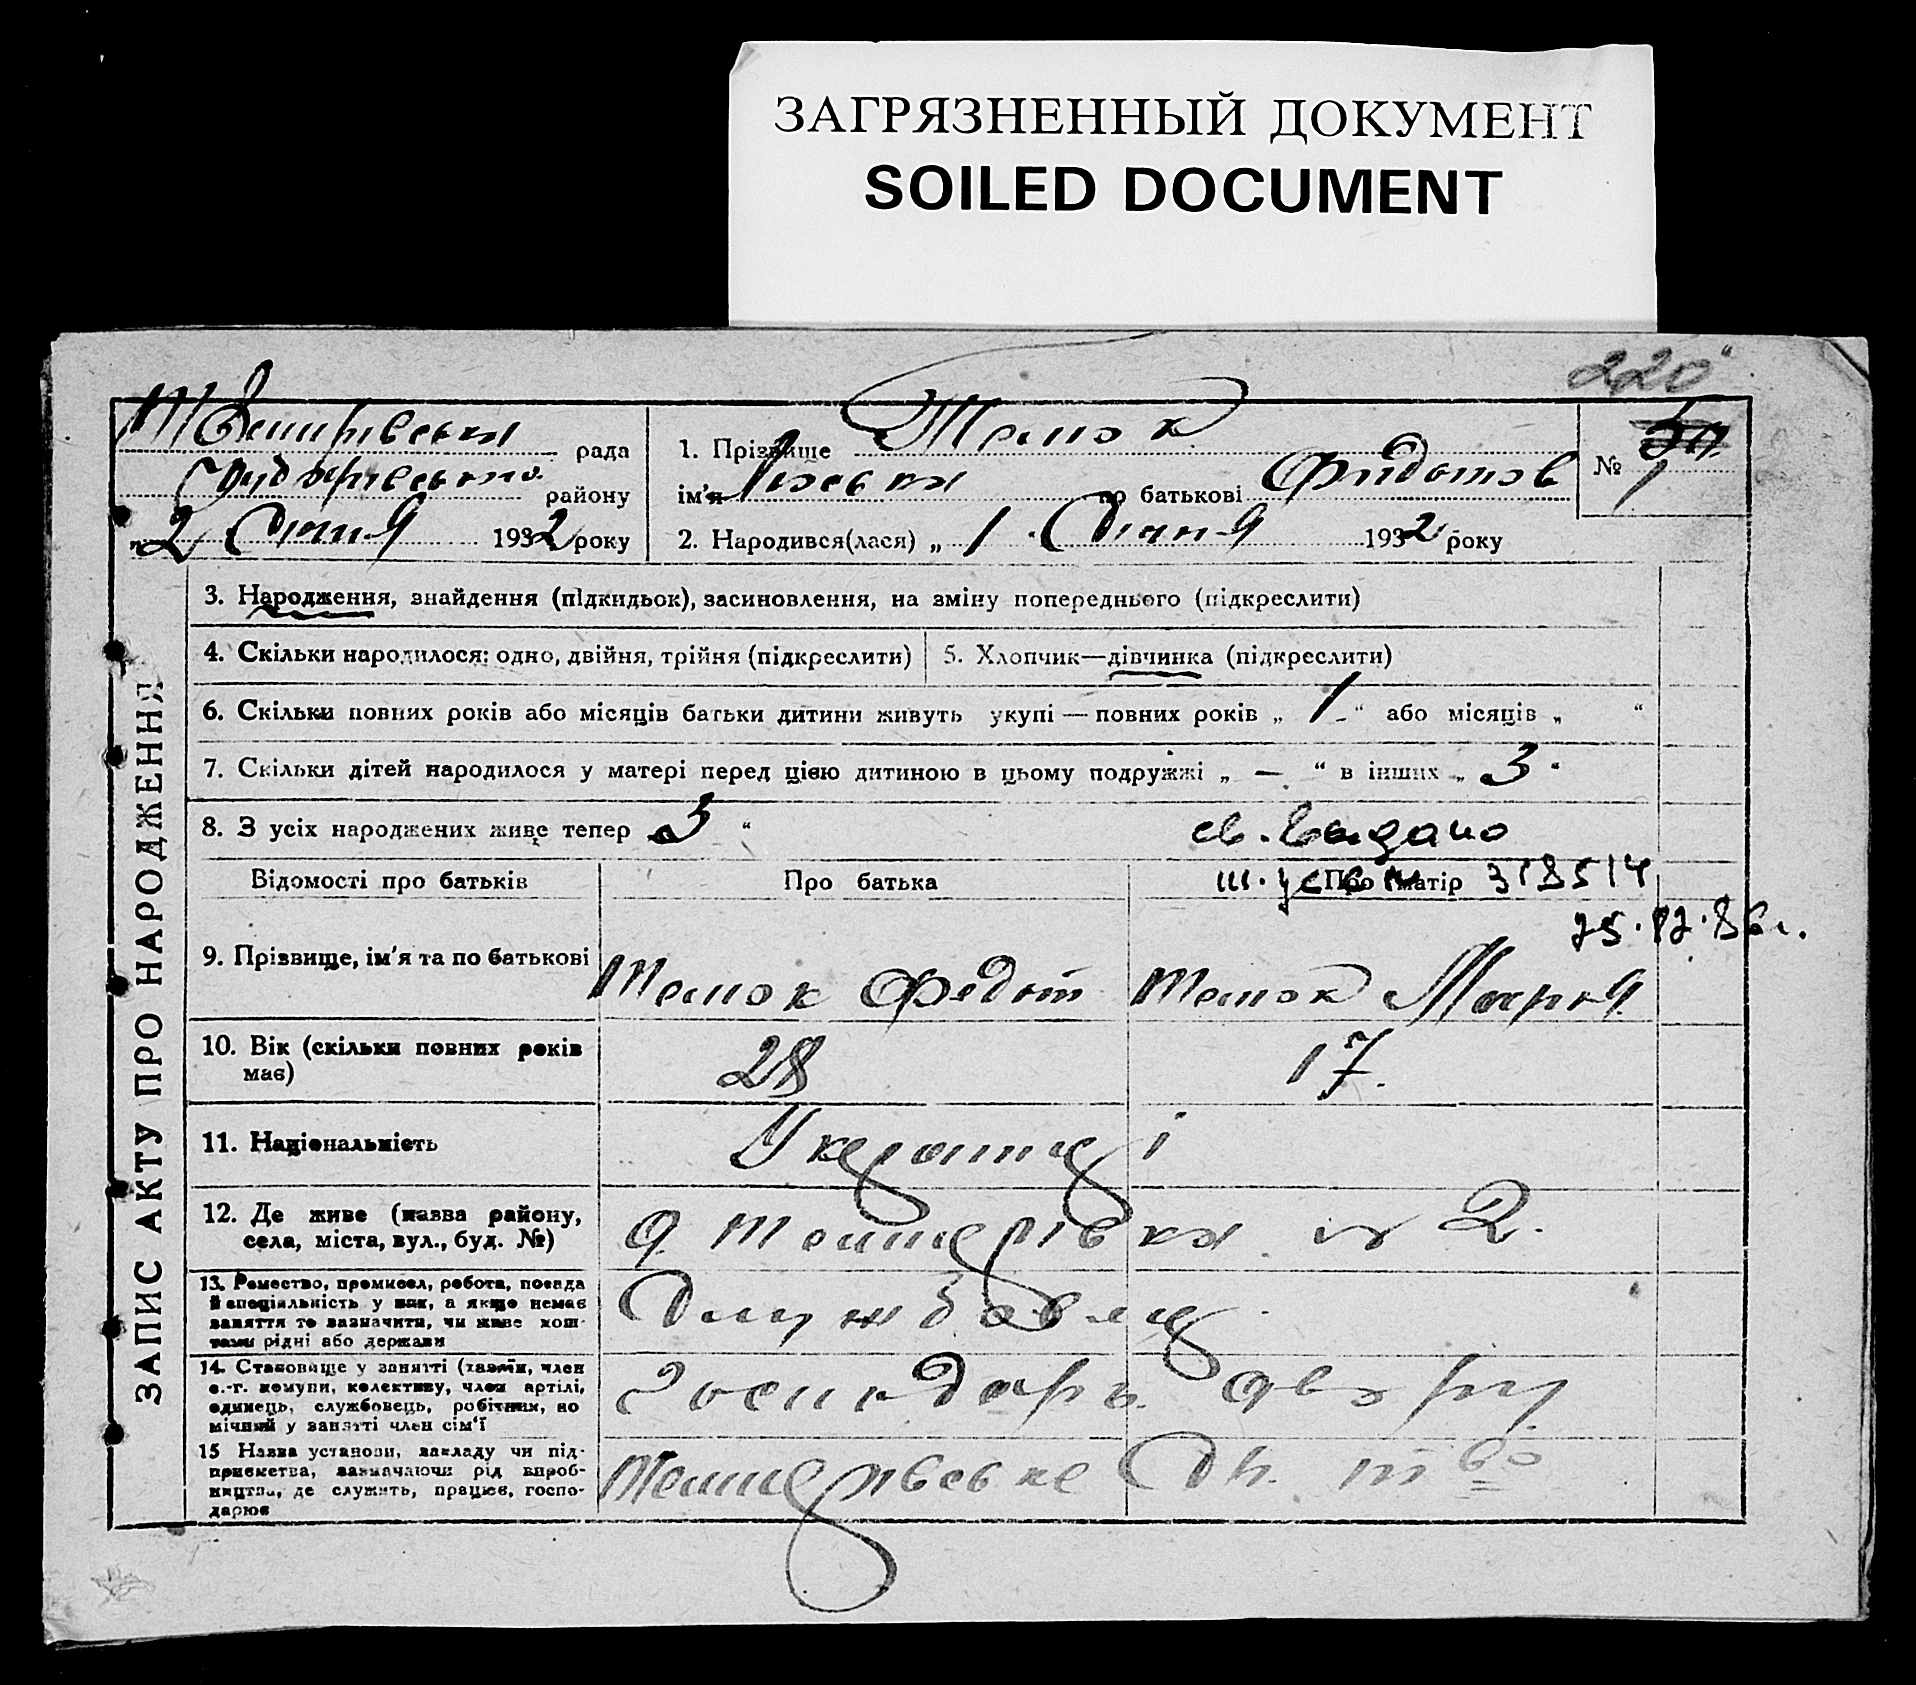 ЗАГРЯЗНЕННЫЙ ДОКУМЕНТ
SOILED DOCUMENT
220
рада
району
„2 Січня 1932 року
1. Прізвище
ім'я по батькові
№ 1
2. Народився(лася) „1 Січня 1932 року
ЗАПИС АКТУ ПРО НАРОДЖЕННЯ
3. Народження, знайдення (підкидьок), засиновлення, на зміну попереднього (підкреслити)
4. Скільки народилося: одно, двійня, трійня (підкреслити)
5. Хлопчик—дівчинка (підкреслити)
6. Скільки повних років або місяців батьки дитини живуть укупі — повних років „ 1 “ або місяців „ “
7. Скільки дітей народилося у матері перед цією дитиною в цьому подружжі „ — “ в інших „ 3
8. З усіх народжених живе тепер 3 “
св. выдано
318514
25.12.86г.
Відомості про батьків
Про батька
Про матір
9. Прізвище, ім'я та по батькові
Федот
Марія
10. Вік (скільки повних років має)
28
17.
11. Національність
Українці
12. Де живе (назва району, села, міста, вул., буд. №)
2.
13. Ремество, промисел, робота, посада й спеціяльність у них, а якщо немає заняття то зазначити, чи живе коштами рідні або держави
Службовець
14. Становище у занятті (хазяїн, член с.-г. комуни, колективу, член артілі, одинець, службовець, робітник, помічний у занятті член сім'ї
Господарь двору
15 Назва установи, закладу чи підприємства, зазначаючи рід виробництва, де служить, працює, господарює